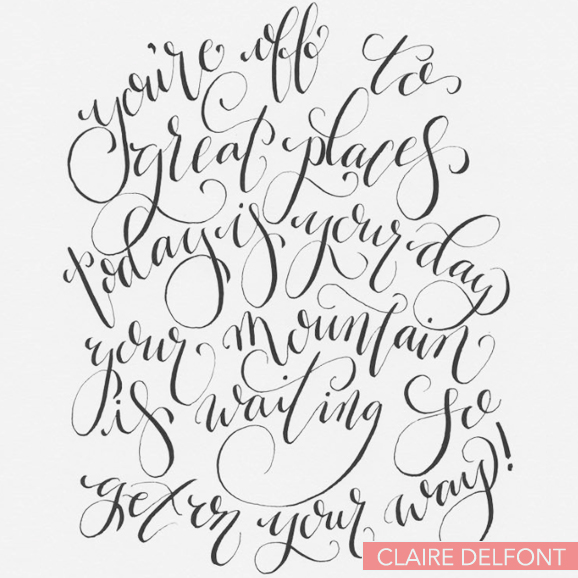 you're off to
great places
today is your day
your mountain
is waiting so
get on your way!
CLAIRE DELFONT